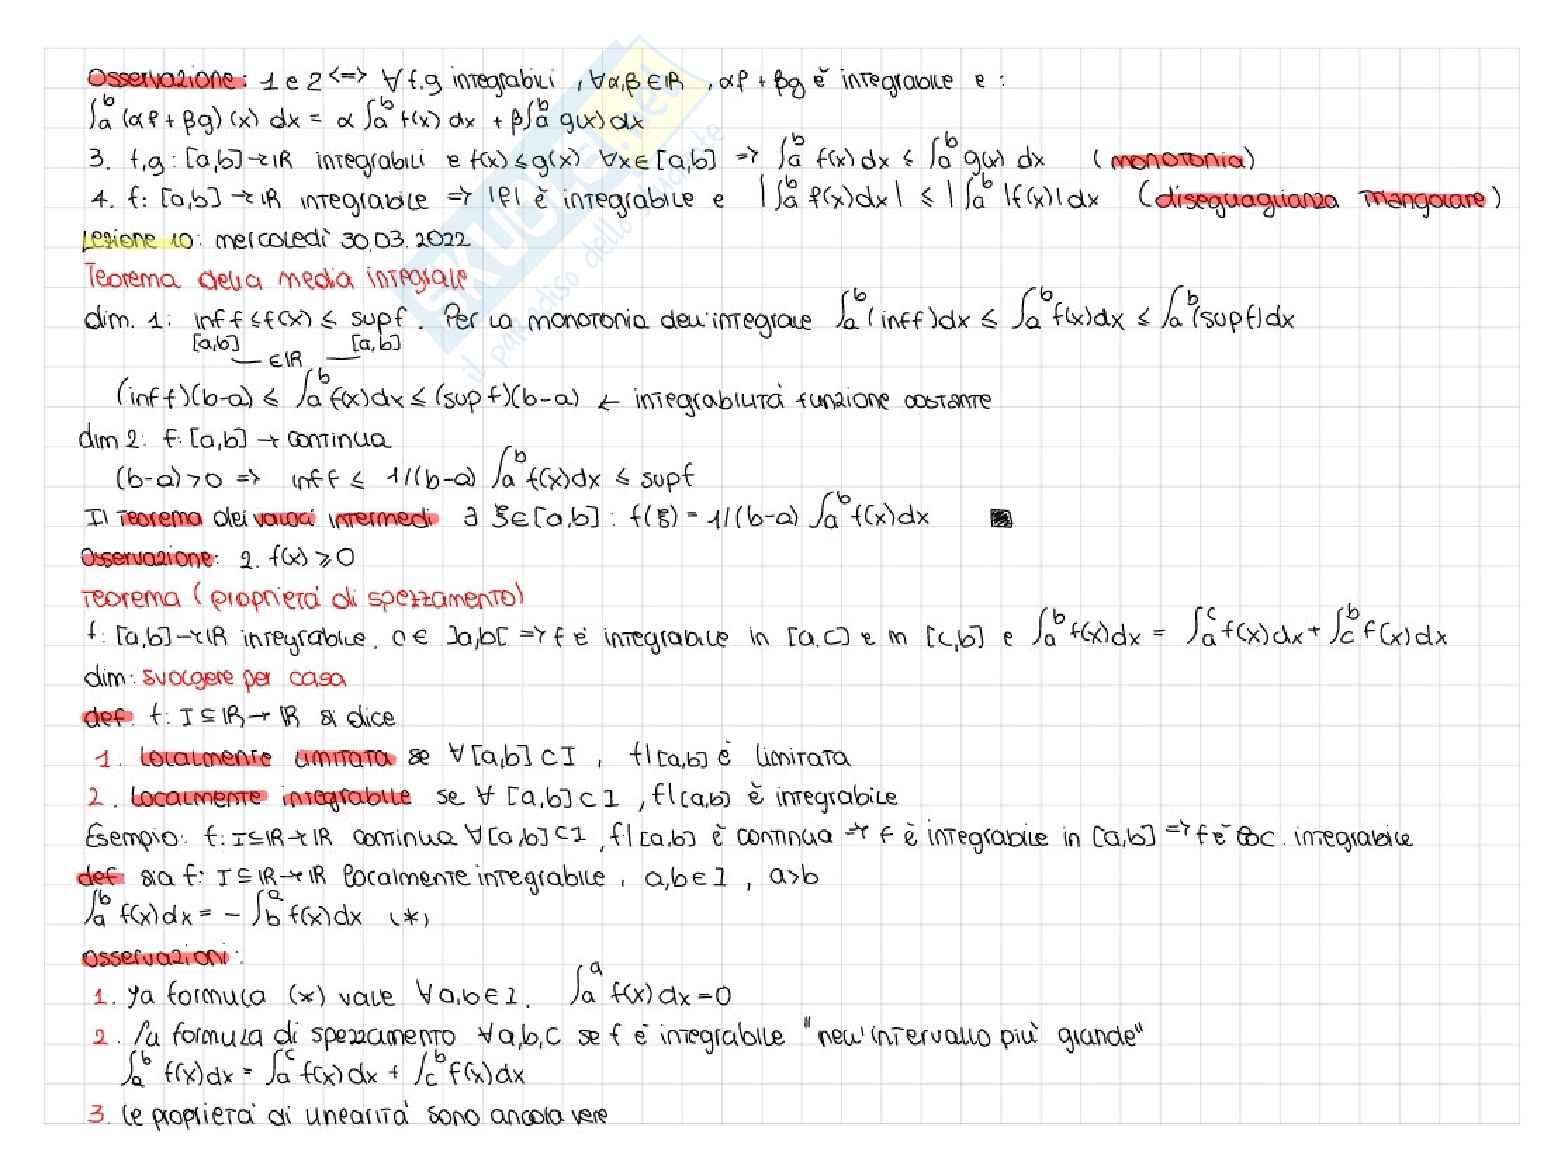 Osservazione: 1 e 2 <=> ∀ f,g integrabili, ∀α,β ∈ ℝ, αf + βg è integrabile e:
∫_a^b (αf + βg)(x) dx = α ∫_a^b f(x) dx + β ∫_a^b g(x) dx
3. f,g: [a,b] → ℝ integrabili e f(x) ≤ g(x) ∀x ∈ [a,b] => ∫_a^b f(x) dx ≤ ∫_a^b g(x) dx (monotonia)
4. f: [a,b] → ℝ integrabile => |f| è integrabile e |∫_a^b f(x)dx| ≤ |∫_a^b |f(x)| dx (diseguaglianza triangolare)
Lezione 10: mercoledì 30.03.2022
Teorema della media integrale
dim. 1: inf f ≤ f(x) ≤ sup f. Per la monotonia dell'integrale ∫_a^b (inf f)dx ≤ ∫_a^b f(x)dx ≤ ∫_a^b (sup f)dx
[a,b] [a,b]
∈ ℝ
(inf f)(b-a) ≤ ∫_a^b f(x)dx ≤ (sup f)(b-a) ← integrabilità funzione costante
dim 2: f: [a,b] → continua
(b-a)>0 => inf f ≤ 1/(b-a) ∫_a^b f(x)dx ≤ sup f
Il teorema dei valori intermedi ∃ ξ ∈ [a,b]: f(ξ) = 1/(b-a) ∫_a^b f(x)dx ■
Osservazione: 2. f(x) ≥ 0
Teorema (proprietà di spezzamento)
f: [a,b] → ℝ integrabile. c ∈ ]a,b[ => f è integrabile in [a,c] e in [c,b] e ∫_a^b f(x)dx = ∫_a^c f(x)dx + ∫_c^b f(x)dx
dim: svolgere per casa
def. f: I ⊆ ℝ → ℝ si dice
1. localmente limitata se ∀ [a,b] ⊂ I, f|[a,b] è limitata
2. localmente integrabile se ∀ [a,b] ⊂ I, f|(a,b) è integrabile
Esempio: f: I ⊆ ℝ → ℝ continua ∀[a,b] ⊂ I, f|[a,b) è continua => f è integrabile in [a,b] => f è loc. integrabile
def. sia f: I ⊆ ℝ → ℝ localmente integrabile, a,b ∈ I, a>b
∫_a^b f(x)dx = - ∫_b^a f(x)dx (*)
Osservazioni:
1. La formula (*) vale ∀ a,b ∈ I. ∫_a^a f(x) dx = 0
2. La formula di spezzamento ∀ a,b,c se f è integrabile "nell'intervallo più grande"
∫_a^b f(x)dx = ∫_a^c f(x)dx + ∫_c^b f(x)dx
3. le proprietà di linearità sono ancora vere
SKUOLA.net
il paradiso dello studente